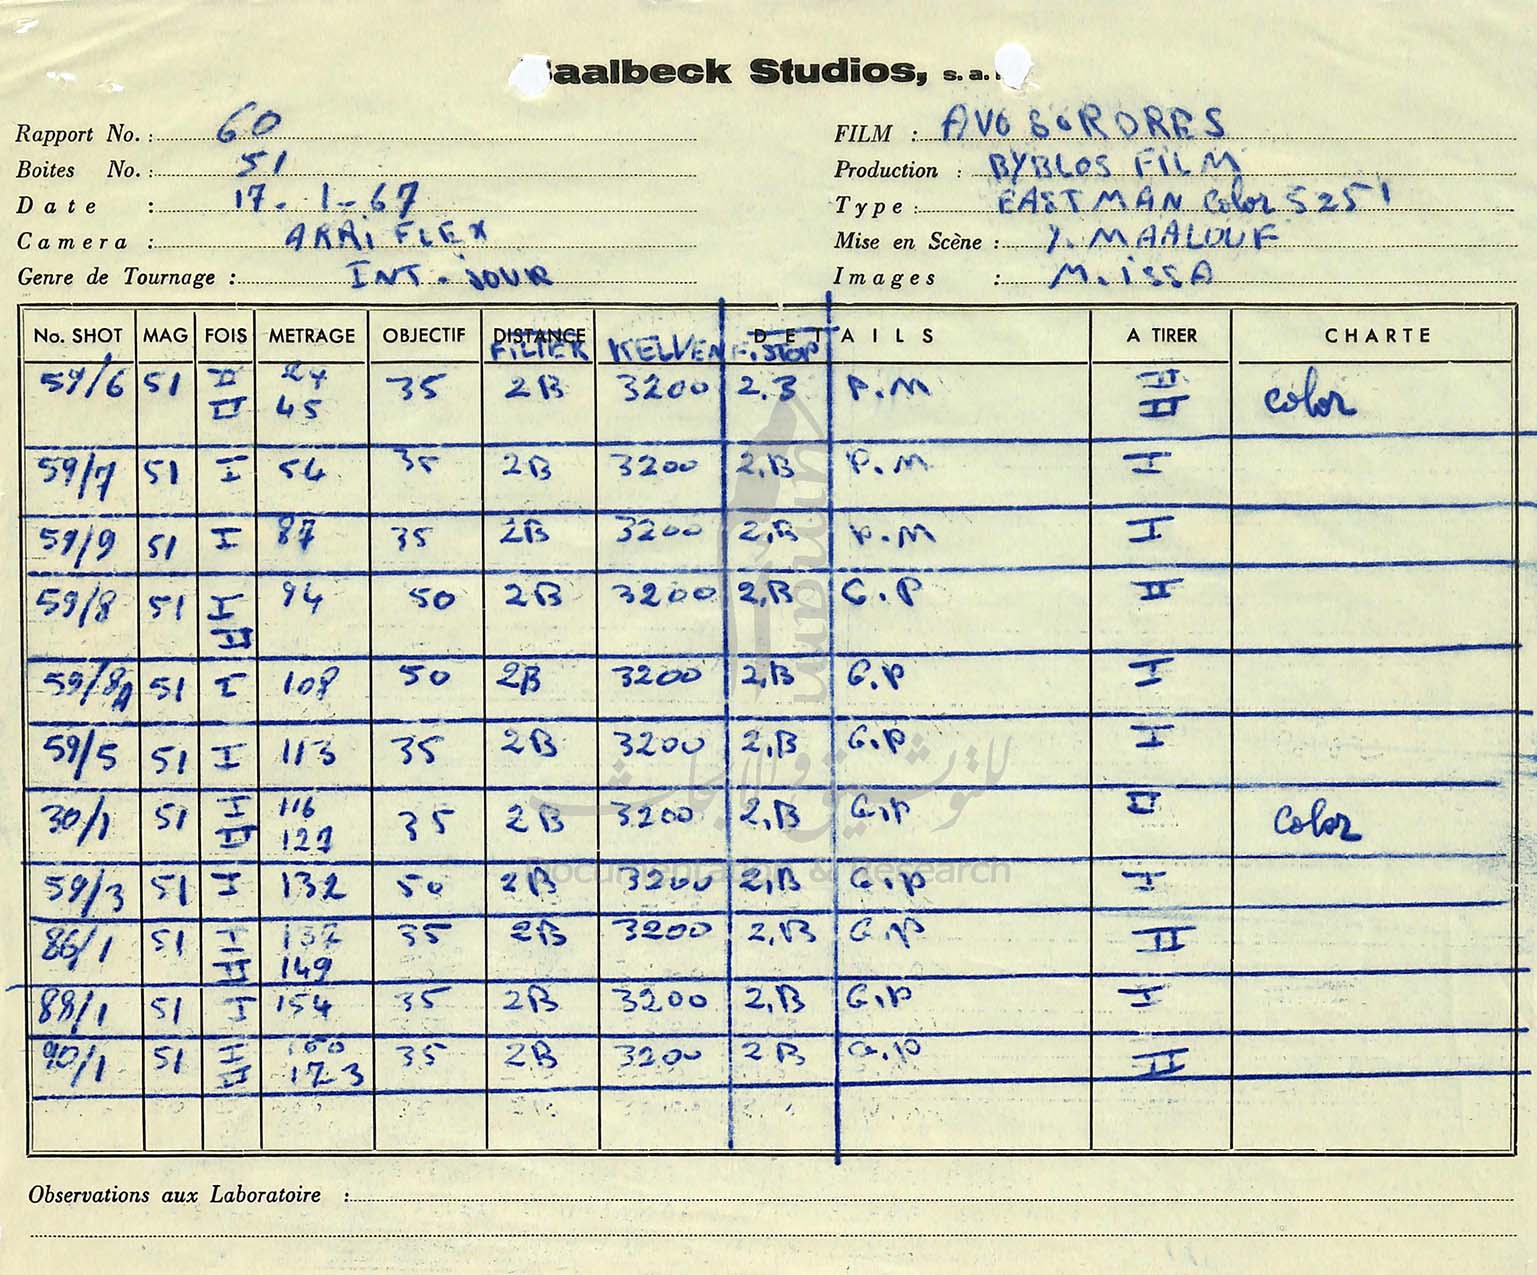 Baalbeck Studios, s.a.
Rapport No. : 60
Boites No. : 51
Date : 17-1-67
Camera : ARRi FLEX
Genre de Tournage : INT. JOUR
FILM :
Production : BYBLOS FILM
Type : EASTMAN Color 5251
Mise en Scène : Y. MAALOUF
Images : M. iSSA
No. SHOT MAG FOIS METRAGE OBJECTIF DISTANCE DETAILS A TIRER CHARTE
FILTER KELVEN F.STOP
59/6 51 II 35 2B 3200 2,3 P.M II color
II 45 II
59/7 51 I 54 35 2B 3200 2,B P.M I
59/9 51 I 87 35 2B 3200 2,B P.M I
59/8 51 I 94 50 2B 3200 2,B G.P II
II
59/8A 51 I 108 50 2B 3200 2,B G.P I
59/5 51 I 113 35 2B 3200 2,B G.P I
30/1 51 I 116 35 2B 3200 2,B G.P II color
II 127
59/3 51 I 132 50 2B 3200 2,B G.P I
86/1 51 I 137 35 2B 3200 2,B G.P II
II 149
89/1 51 I 154 35 2B 3200 2,B G.P I
90/1 51 I 160 35 2B 3200 2B G.P II
II 173
Observations aux Laboratoire :
umam
للتوثيق والأبحاث
Documentation & Research